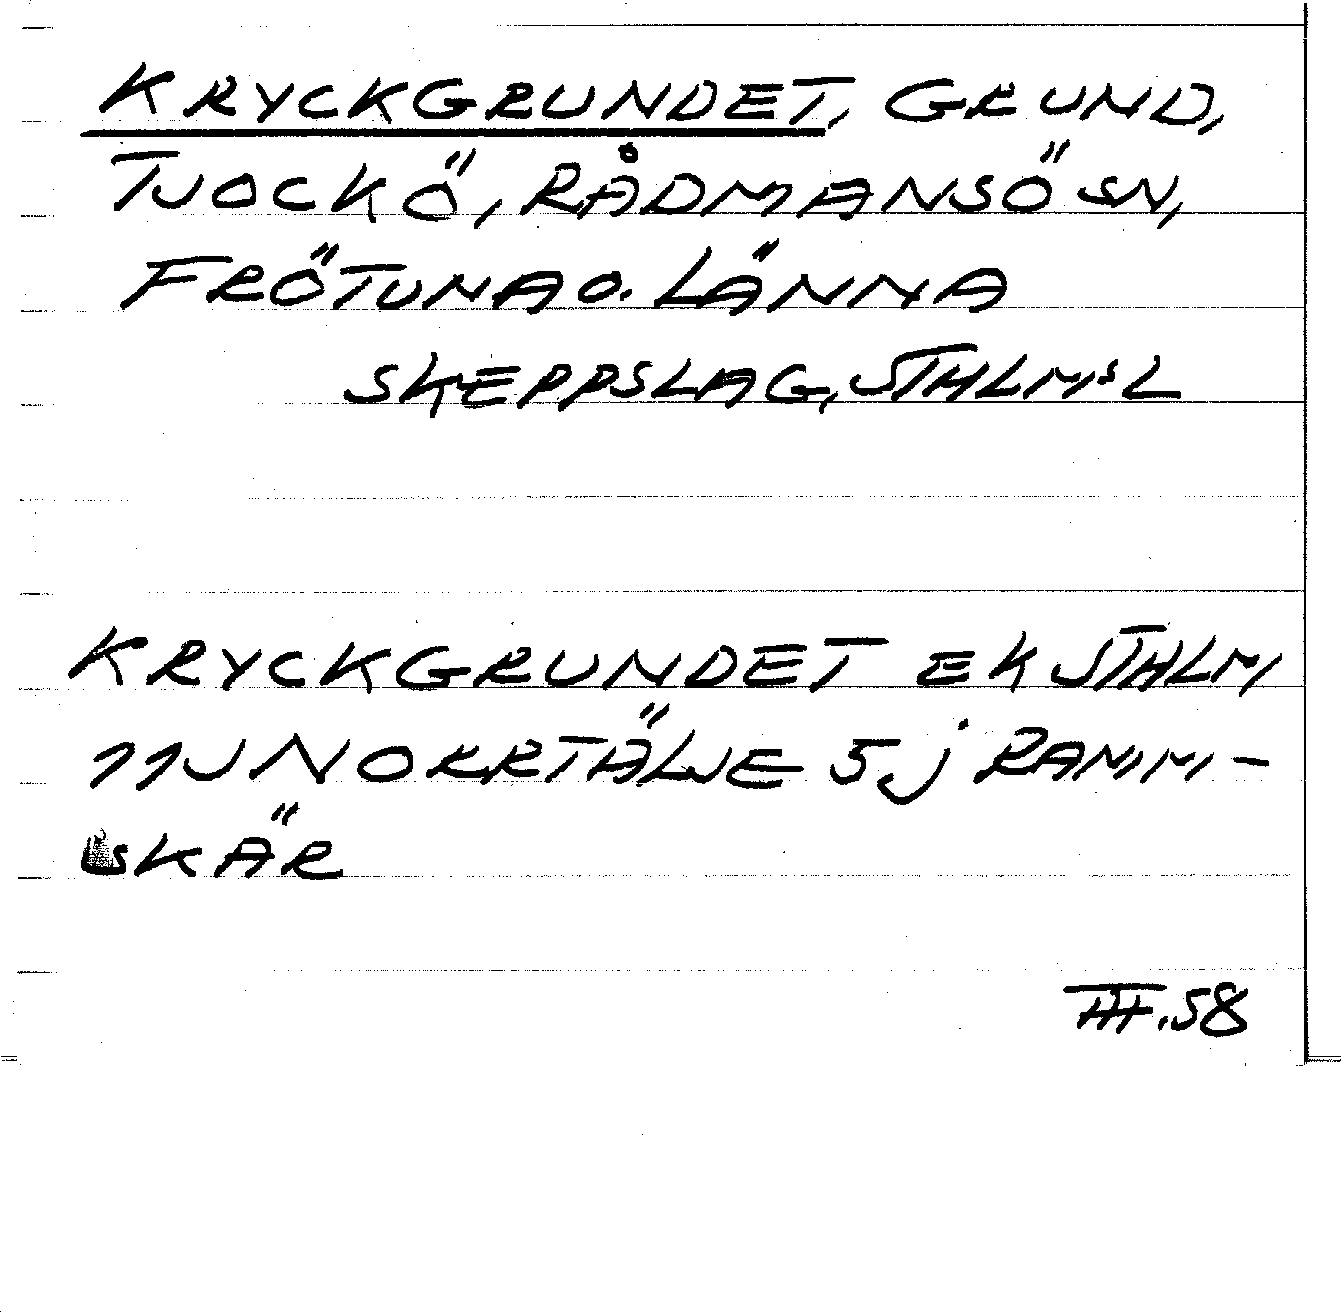 KRYCKGRUNDET, GRUND,
TJOCKÖ, RÅDMANSÖ SN,
FRÖTUNA O. LÄNNA
SKEPPSLAG, STHLMS L
KRYCKGRUNDET EK STHLM
11J NORRTÄLJE 5j RAMM-
SKÄR
III.58